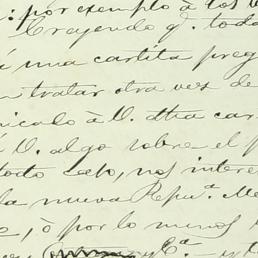 : por exemplo à los
Creyendo q. toda
una cartita preg
tratar otra vez de
à V. dha car
V. algo sobre el p
todo esto, nos intere
la nueva Repu.ª Me
, ò por lo menos
y C.ª